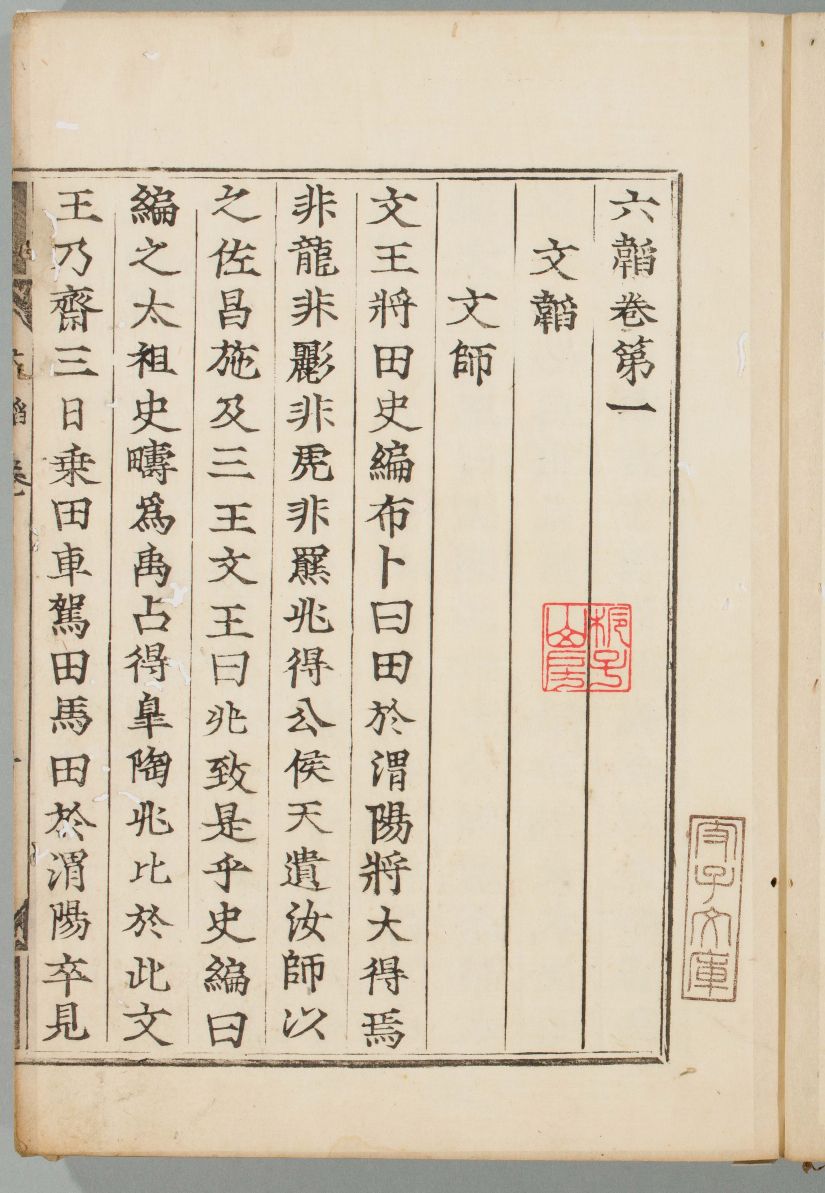 六韜卷第一
文韜
文師
文王將田史編布卜曰田於渭陽將大得焉
非龍非彲非虎非羆兆得公侯天遺汝師以
之佐昌施及三王文王曰兆致是乎史編曰
編之太祖史疇爲禹占得皐陶兆比於此文
王乃齋三日乗田車駕田馬田於渭陽卒見
山房
子文庫
六韜卷